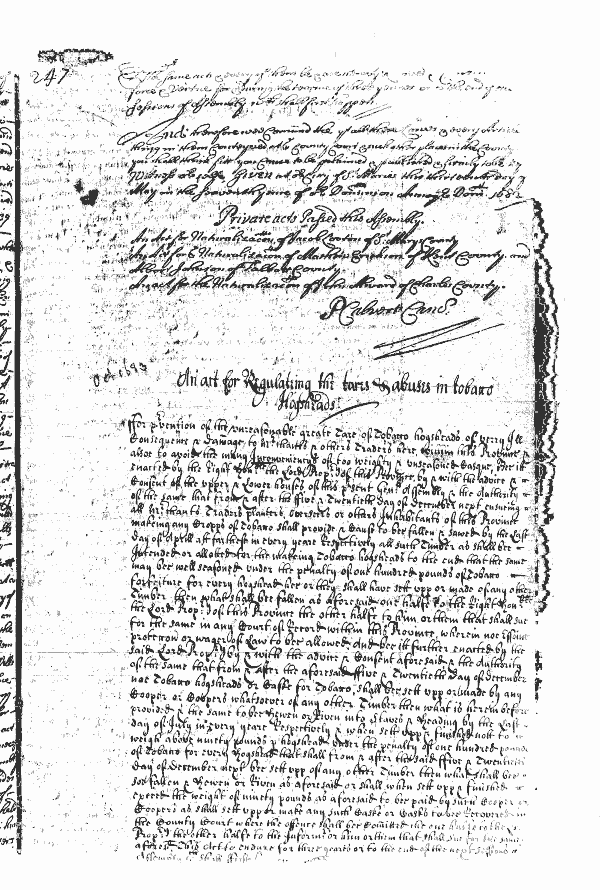 247
same act
force & Vertue for & during the terme of three yeares or to the end of the
Sessions of Assembly next that shall first happen
And therefore wee Comand the y^t all these Lawes & every Article
thing in them Conteyned att County Court & such other places in the County
you shall think fitt you Cause to be published & published
Witness our selfe Given att the City of S^t Maries this thirteenth day of
May in the seaventh yeare of o^r Dominion Annoq^e Dom^i 1682
Private acts Passed this Assembly.
An Act for Naturalizacon of Jacob of S^t Marys County
An Act for Naturalizacon of Mathias of Kent County and
Albert Johnson of Talbott County
An act for the Naturalizacon of John of Charles County.
P Calvert Canc^r.
Oct 1683
An act for Regulating the tares & abuses in tobacco
Hogsheads
For p^rvention of the unreasonable greate Tare of Tobacco hogsheads of very Ill
Consequence & Damage to M^rchants & others Traders here, within this Province &
alsoe to avoide the many Inconveniencys of too weighty & unseasoned Casque, Bee itt
enacted by the Right hon^ble the Lord Prop^r of this Province, by & with the advice &
Consent of the upper & Lower houses of this p^rsent Gen^ll Assembly & the Authority
of the same that from & after the five & Twentieth Day of December next ensueing
all M^rchants Traders planters, overseers or others Inhabitants of this Province
making any Cropps of Tobacco shall provide & Cause to bee fallen & sawed by the Last
day of Aprill att farthest in every yeare Respectively all such Timber as shall bee
Intended or allotted for the making Tobacco hogsheads to the end that the same
may bee well seasoned under the penalty of one hundred pounds of Tobacco
forfeiture for every hogshead hee or they shall have sett upp or made of any other
Timber then what shall bee fallen as aforesaid one halfe to the Right Hon^ble
the Lord Prop^r of this Province the other halfe to him or them that shall sue
for the same in any Court of Record within this Province, wherein noe essoine
protection or wager of Law to bee allowed, And bee itt further enacted by the
said Lord Prop^r by & with the advice & Consent aforesaid & the Authority
of the same that from & after the aforesaid five & Twentieth day of December
noe Tobacco hogsheads or Caske for Tobacco, shall bee sett upp or made by any
Cooper or Coopers whatsoever of any other Timber then what is herein before
provided & the same to bee hewen or Riven into staves & heading by the Last
day of July in every yeare Respectively & when sett upp & finished not to
weigh above ninety pounds p hogshead under the penalty of one hundred pounds
of Tobacco for every hogshead that shall from & after the said five & Twentieth
day of December next bee sett upp of any other Timber then what shall bee
soe fallen & hewen or Riven as aforesaid or shall when sett upp & finished
exceed the weight of ninety pounds as aforesaid to bee paid by such Cooper or
Coopers as shall sett upp or make any such Caske or Casks to bee Recovered in
the County Court where the offence shall bee Comitted the one halfe to the
Prop^r the other halfe to the Informer or him or them that shall sue for the same
aforesd. This Act to endure for three yeares or to the end of the next Sessions of
Assembly w^ch shall first